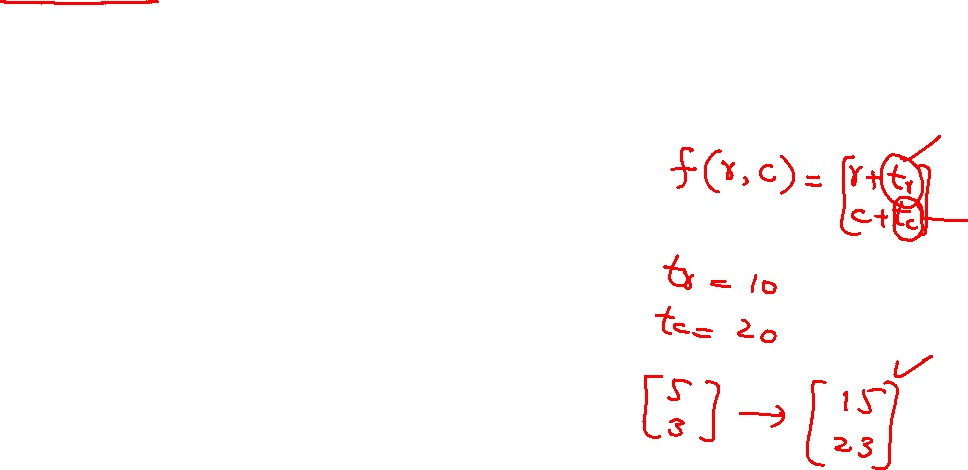 f(r, c) = [r + t_r
c + t_c]
t_r = 10
t_c = 20
[5 3] → [15 23]